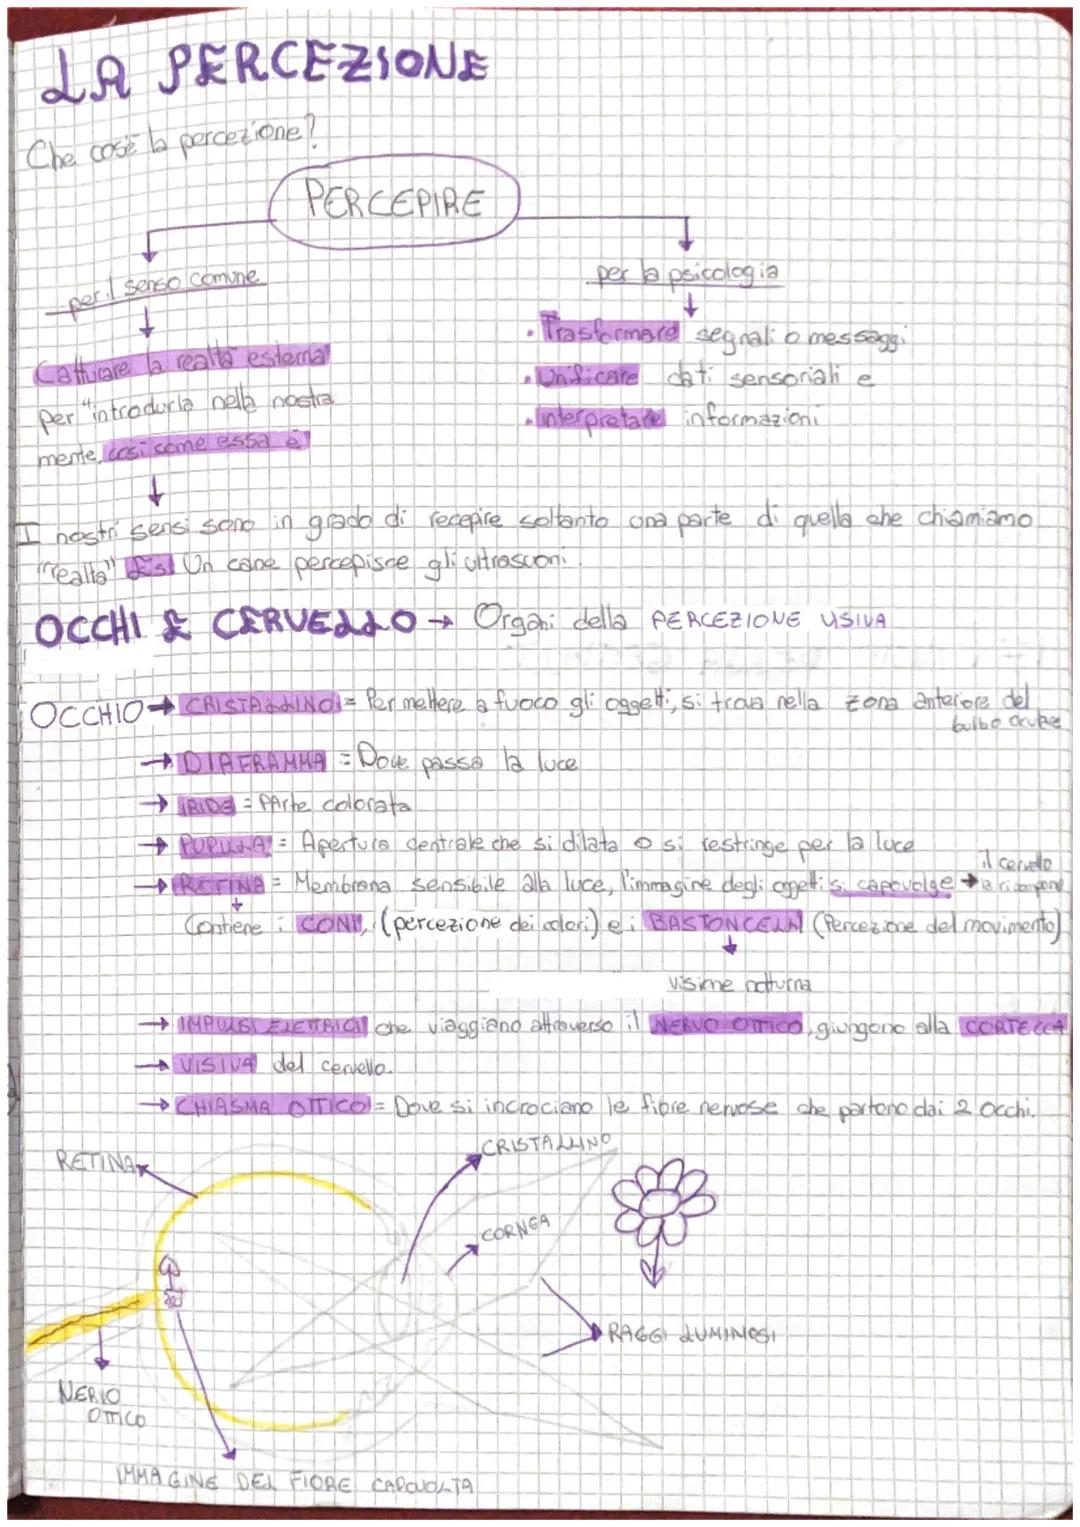 LA PERCEZIONE
Che cos'è la percezione?
PERCEPIRE
per il senso comune
Catturare la realtà esterna
per "introdurla nella nostra
mente, così come essa è"
per la psicologia
• Trasformare segnali o messaggi
• Unificare dati sensoriali e
• interpretare informazioni
I nostri sensi sono in grado di recepire soltanto una parte di quella che chiamiamo
"realtà" Es. Un cane percepisce gli ultrasuoni.
OCCHI E CERVELLO → Organi della PERCEZIONE VISIVA
OCCHIO → CRISTALLINO = Per mettere a fuoco gli oggetti, si trova nella zona anteriore del
bulbo oculare
→ DIAFRAMMA = Dove passa la luce
→ IRIDE = PArte colorata
→ PUPILLA = Apertura centrale che si dilata o si restringe per la luce
→ RETINA = Membrana sensibile alla luce, l'immagine degli oggetti si capovolge → il cervello
la ricompone
Contiene i CONI, (percezione dei colori) e i BASTONCELLI (Percezione del movimento)
visione notturna
→ IMPULSI ELETTRICI che viaggiano attraverso il NERVO OTTICO, giungono alla CORTECCA
→ VISIVA del cervello.
→ CHIASMA OTTICO = Dove si incrociano le fibre nervose che partono dai 2 occhi.
RETINA
CRISTALLINO
CORNEA
RAGGI LUMINOSI
NERVO
OTTICO
IMMAGINE DEL FIORE CAPOVOLTA